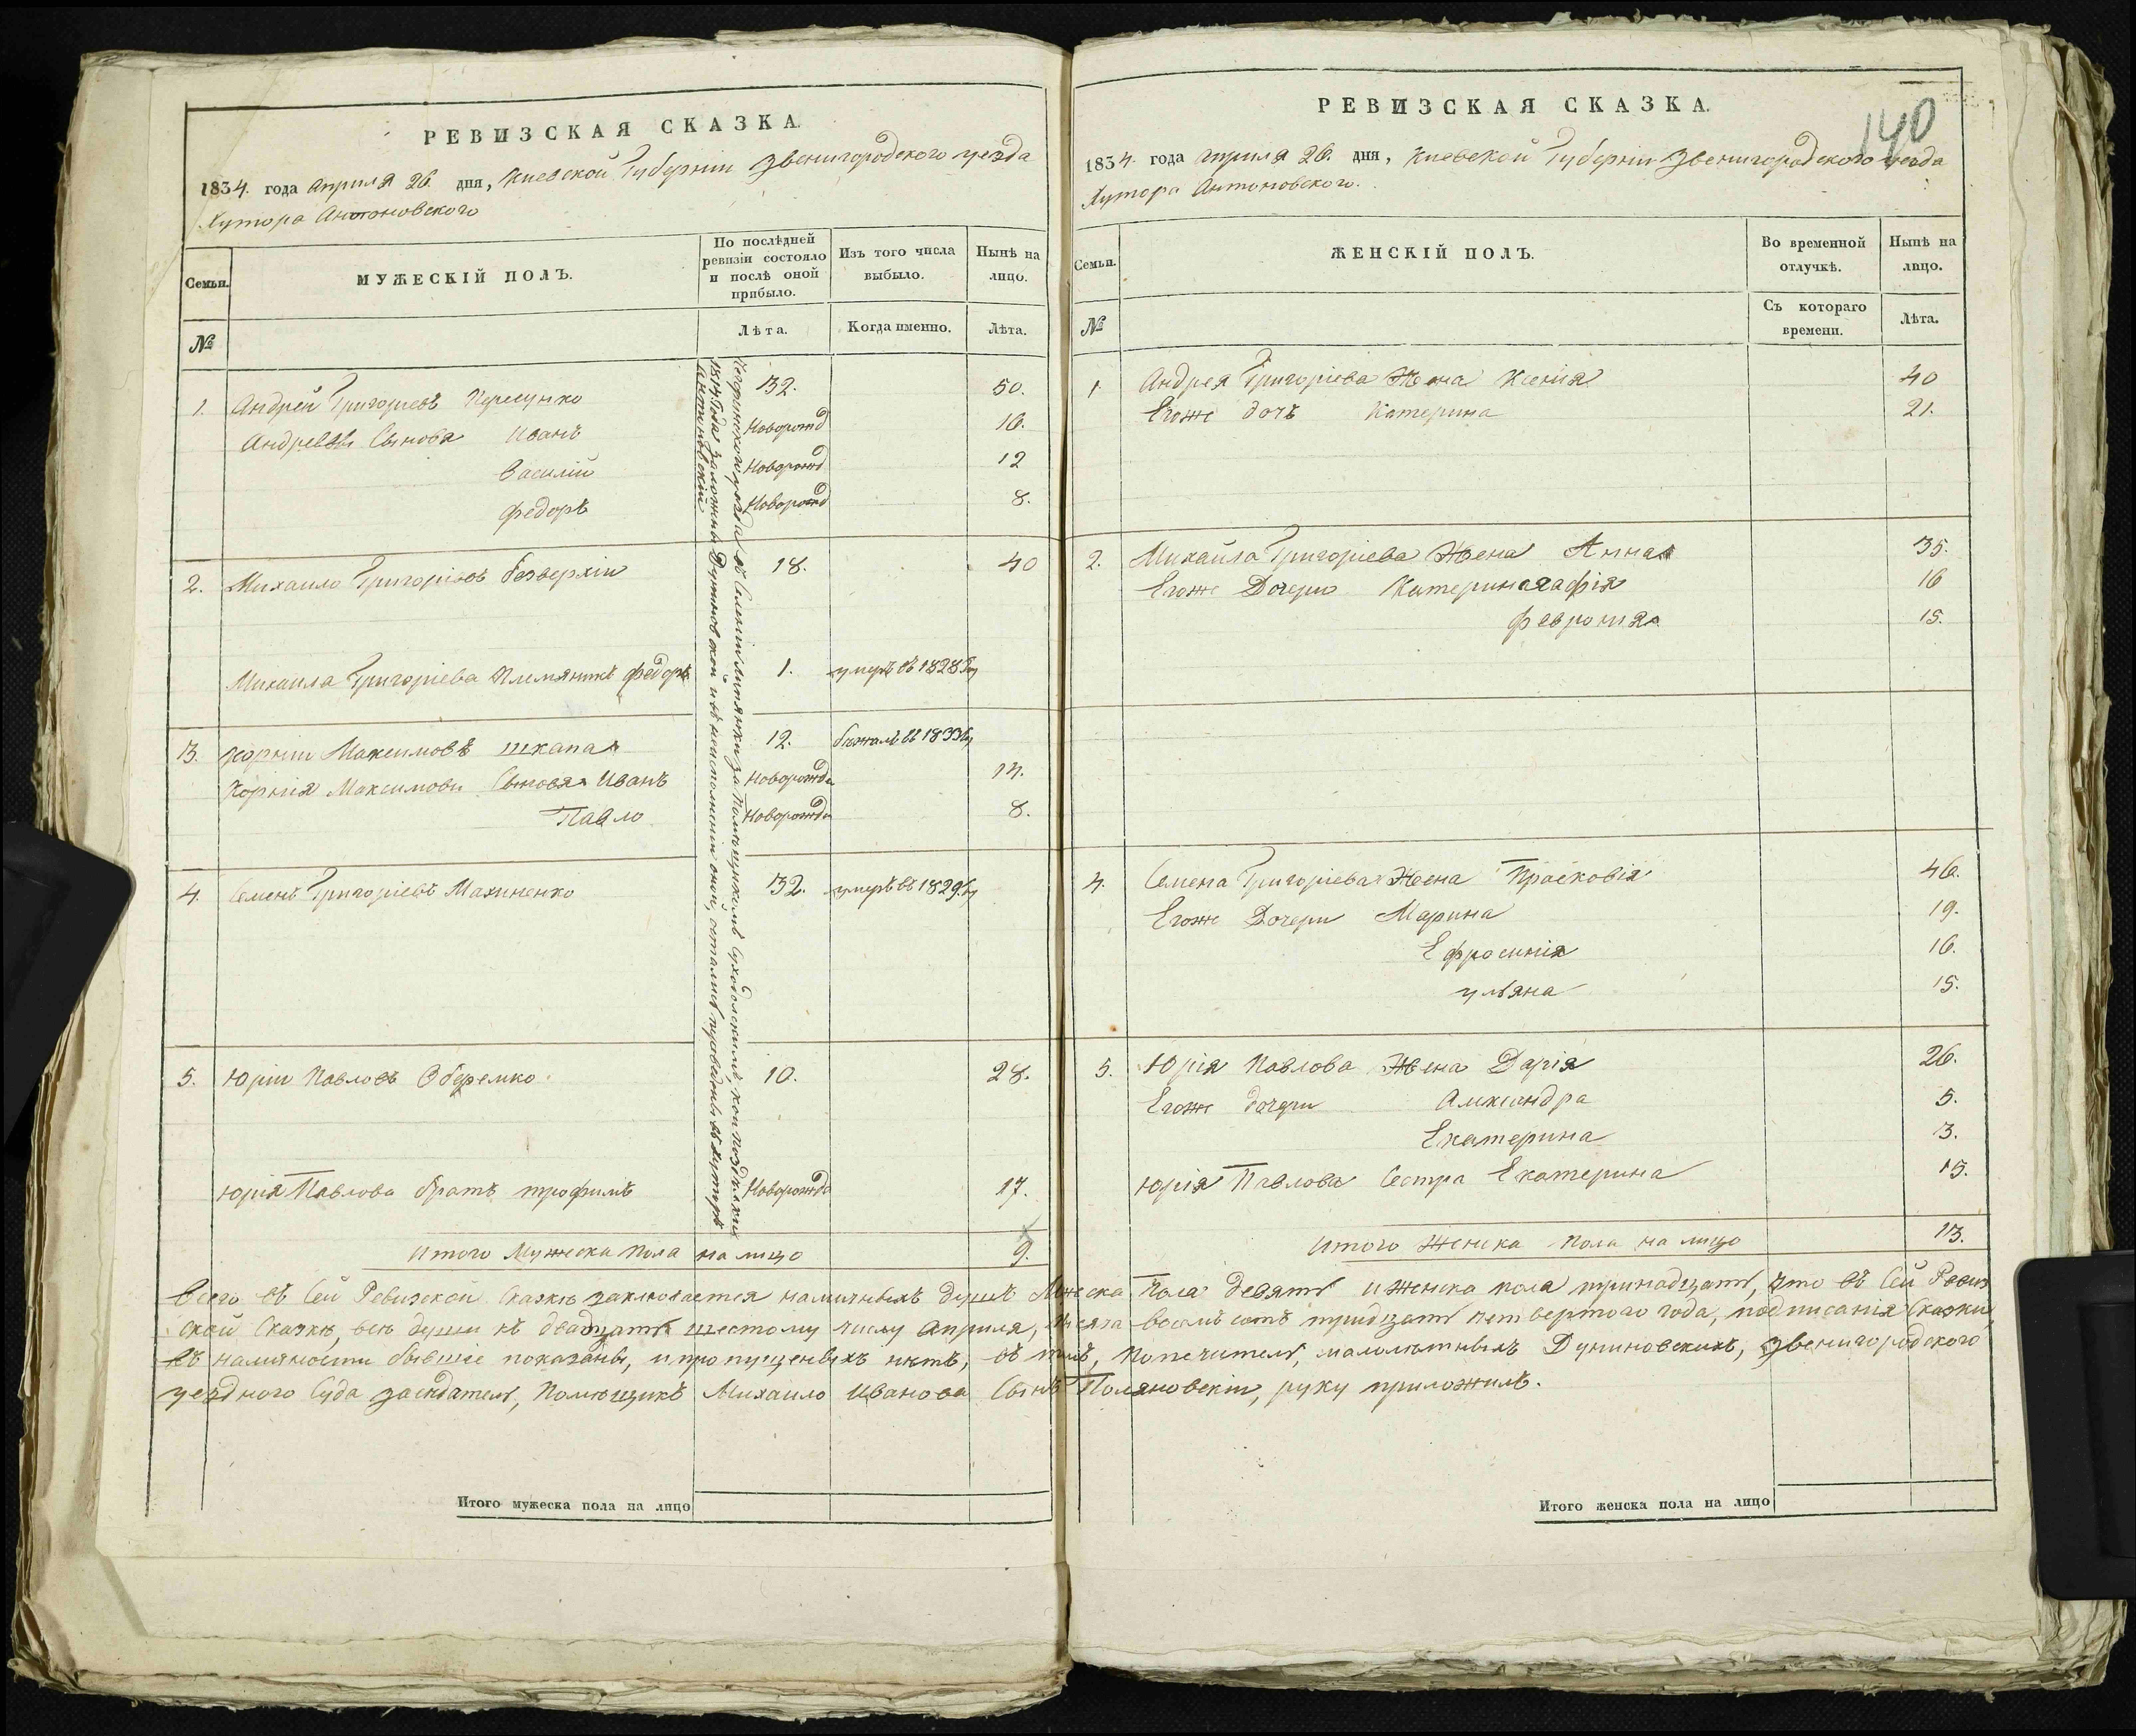 РЕВИЗСКАЯ СКАЗКА.
1834. года Апреля 26. дня, Киевской Губернiи Звенигородского уезда
Хутора Антоновского
Семьи.
МУЖЕСКIЙ ПОЛЪ.
По послѣдней ревизiи состояло и послѣ оной прибыло.
Изъ того числа выбыло.
Нынѣ на лицо.
№
Лѣта.
Когда именно.
Лѣта.
1. Андрей Григорiевъ 32. 50.
Андреевы Сыновя Иванъ Новорожд 16.
Василiй Новорожд 12
Федоръ Новорожд 8.
2. Михайло Григорiевъ безверхiи 18. 40
Михаила Григорiева Племяникъ Федоръ 1. умеръ въ 1828 году
3. Корнiи Максимовъ шкапа 12. бежалъ въ 1833 году
Корнiя Максимова Сыновя Иванъ Новорожде 14.
Павло Новорожде 8.
4. Семенъ Григорiевъ Махиненко 32. умеръ въ 1829 году
5. Юрiи Павловъ Оберемко 10. 28.
Юрiя Павлова братъ трофимъ Новорожде 17.
уезда въ Селенiи Литвинки за Помещикомъ Суходолскимъ, кои
1814 Года Заложны Дуниновской и не исполненiи оной, осталис в Хуторѣ
Антоновскiи
итого Мужеска пола на лицо 9.
Итого мужеска пола на лицо
РЕВИЗСКАЯ СКАЗКА.
140
1834. года Апреля 26. дня, Киевской Губернiи Звенигородского уезда
Хутора Антоновского.
Семьи.
ЖЕНСКIЙ ПОЛЪ.
Во временной отлучкѣ.
Нынѣ на лицо.
№
Съ котораго времени.
Лѣта.
1 Андрея Григорiева Жена Ксенiя 40
Егоже дочъ Катерина 21.
2. Михайла Григорiева Жена Анна 35.
Егоже Дочери 16
Феврония 15.
4. Семена Григорiева Жена Прасковiя 46.
Егоже Дочери Марина 19.
Ефросинiя 16.
ульяна 15.
5. Юрiя Павлова Жена Дарiя 26.
Егоже дочери Александра 5.
Екатерина 3.
Юрiя Павлова Сестра Екатерина 15.
итого Женска пола на лицо 13.
Всего въ Сей Ревизской Сказкѣ заключается наличныхъ душъ Мужеска Пола девять и Женска пола тринадцать, что въ Сей Ревиз
ской Сказкѣ, все души къ двадцать шестому числу Апреля, тисяча восемъ сотъ тридцать четвертого года, подписанiя Сказки,
въ наличности бывшiе показаны, и пропущеныхъ нѣтъ, въ томъ, Попечитель, малолѣтныхъ Дуниновскихъ, Звенигородского
уездного Суда заседатель, Помѣщикъ Михайло Иванова Сынъ Поляновскiи, руку приложилъ.
Итого женска пола на лицо